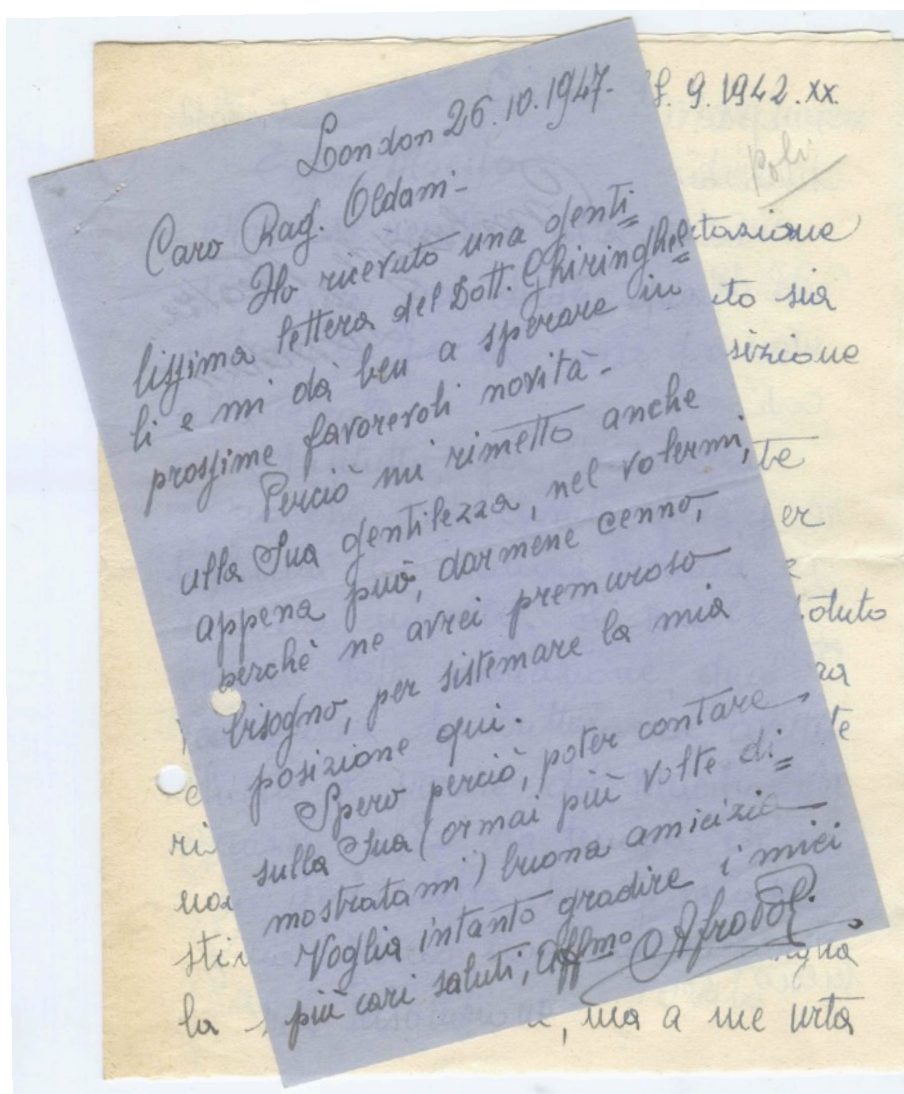 London 26.10.1947.
Caro Rag. Oldani-
Ho ricevuto una genti=
lissima lettera del Dott. Ghiringhel=
li e mi dà ben a sperare in
prossime favorevoli novità-
Perciò mi rimetto anche
alla Sua gentilezza, nel volermi,
appena può, darmene cenno,
perchè ne avrei premuroso
bisogno, per sistemare la mia
posizione qui.
Spero perciò, poter contare
sulla Sua (ormai più volte di=
mostratami) buona amicizia
Voglia intanto gradire i miei
più cari saluti, Affmo Afro Poli.
8. 9. 1942. XX.
Poli
tazione
uto sia
sizione
te
er
e
oluto
ra
te
ri
non
sti
la
, ma a me urta